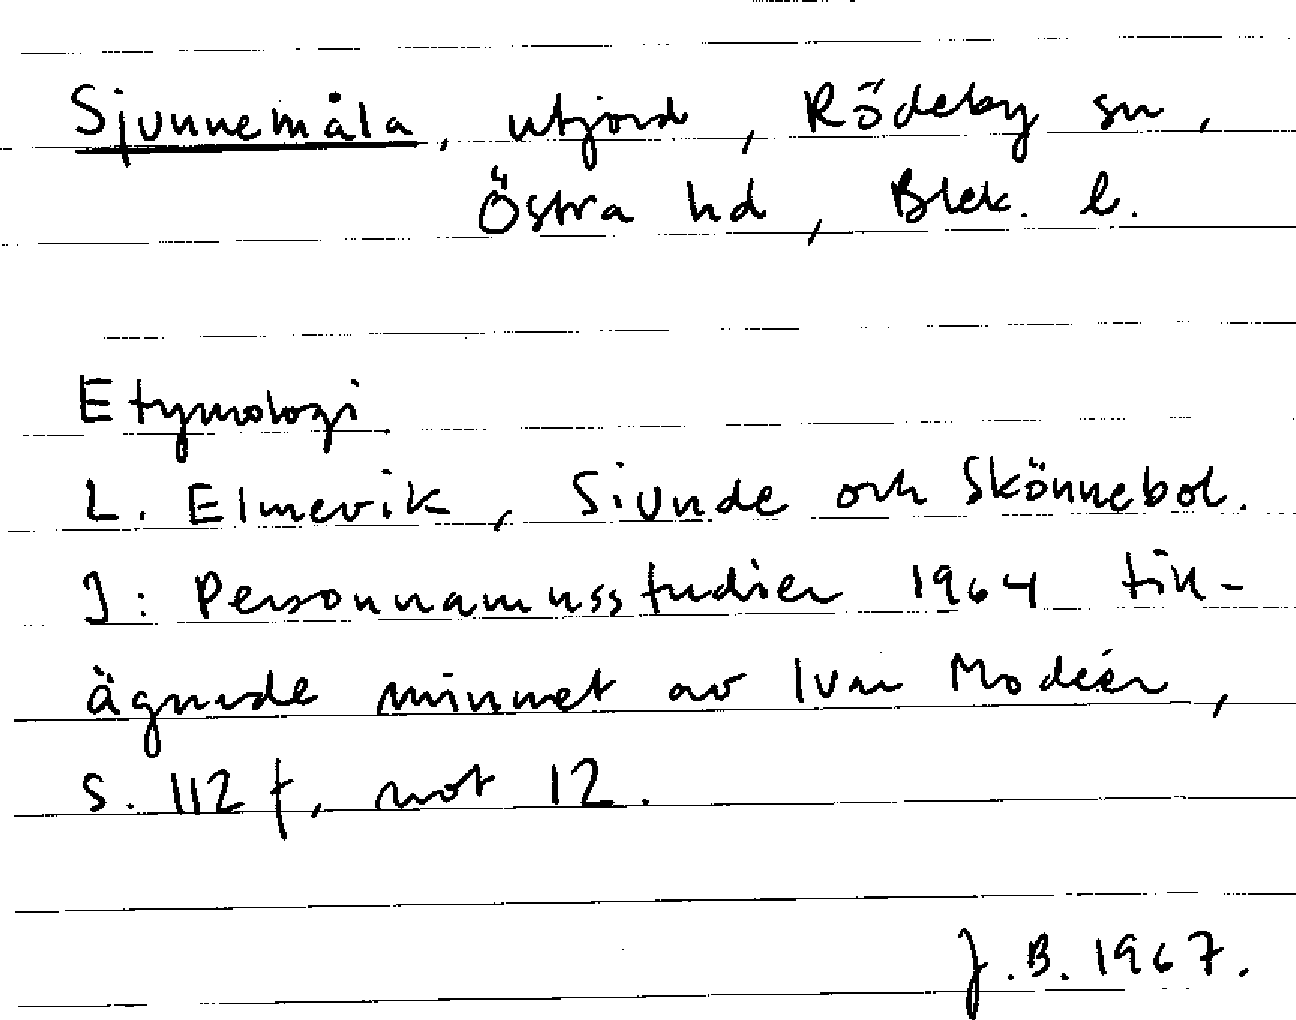 Sjunnemåla, utjord, Rödeby sn,
Östra hd, Blek. l.
Etymologi
L. Elmevik, Siunde och Skönnebol.
I: Personnamnsstudier 1964 till-
ägnade minnet av Ivar Modéer,
s. 112 f, not 12.
J.B. 1967.